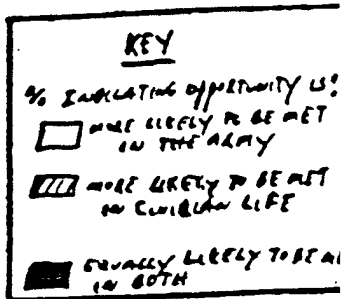 KEY
% INDICATING OPPORTUNITY IS:
MORE LIKELY TO BE MET
IN THE ARMY
MORE LIKELY TO BE MET
IN CIVILIAN LIFE
EQUALLY LIKELY TO BE
IN BOTH